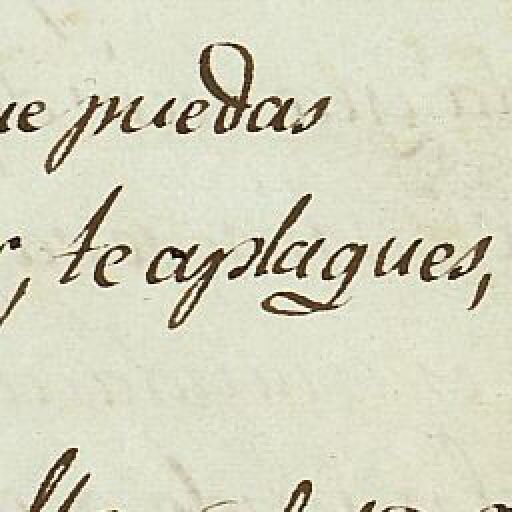 puedas
, te aplaques,